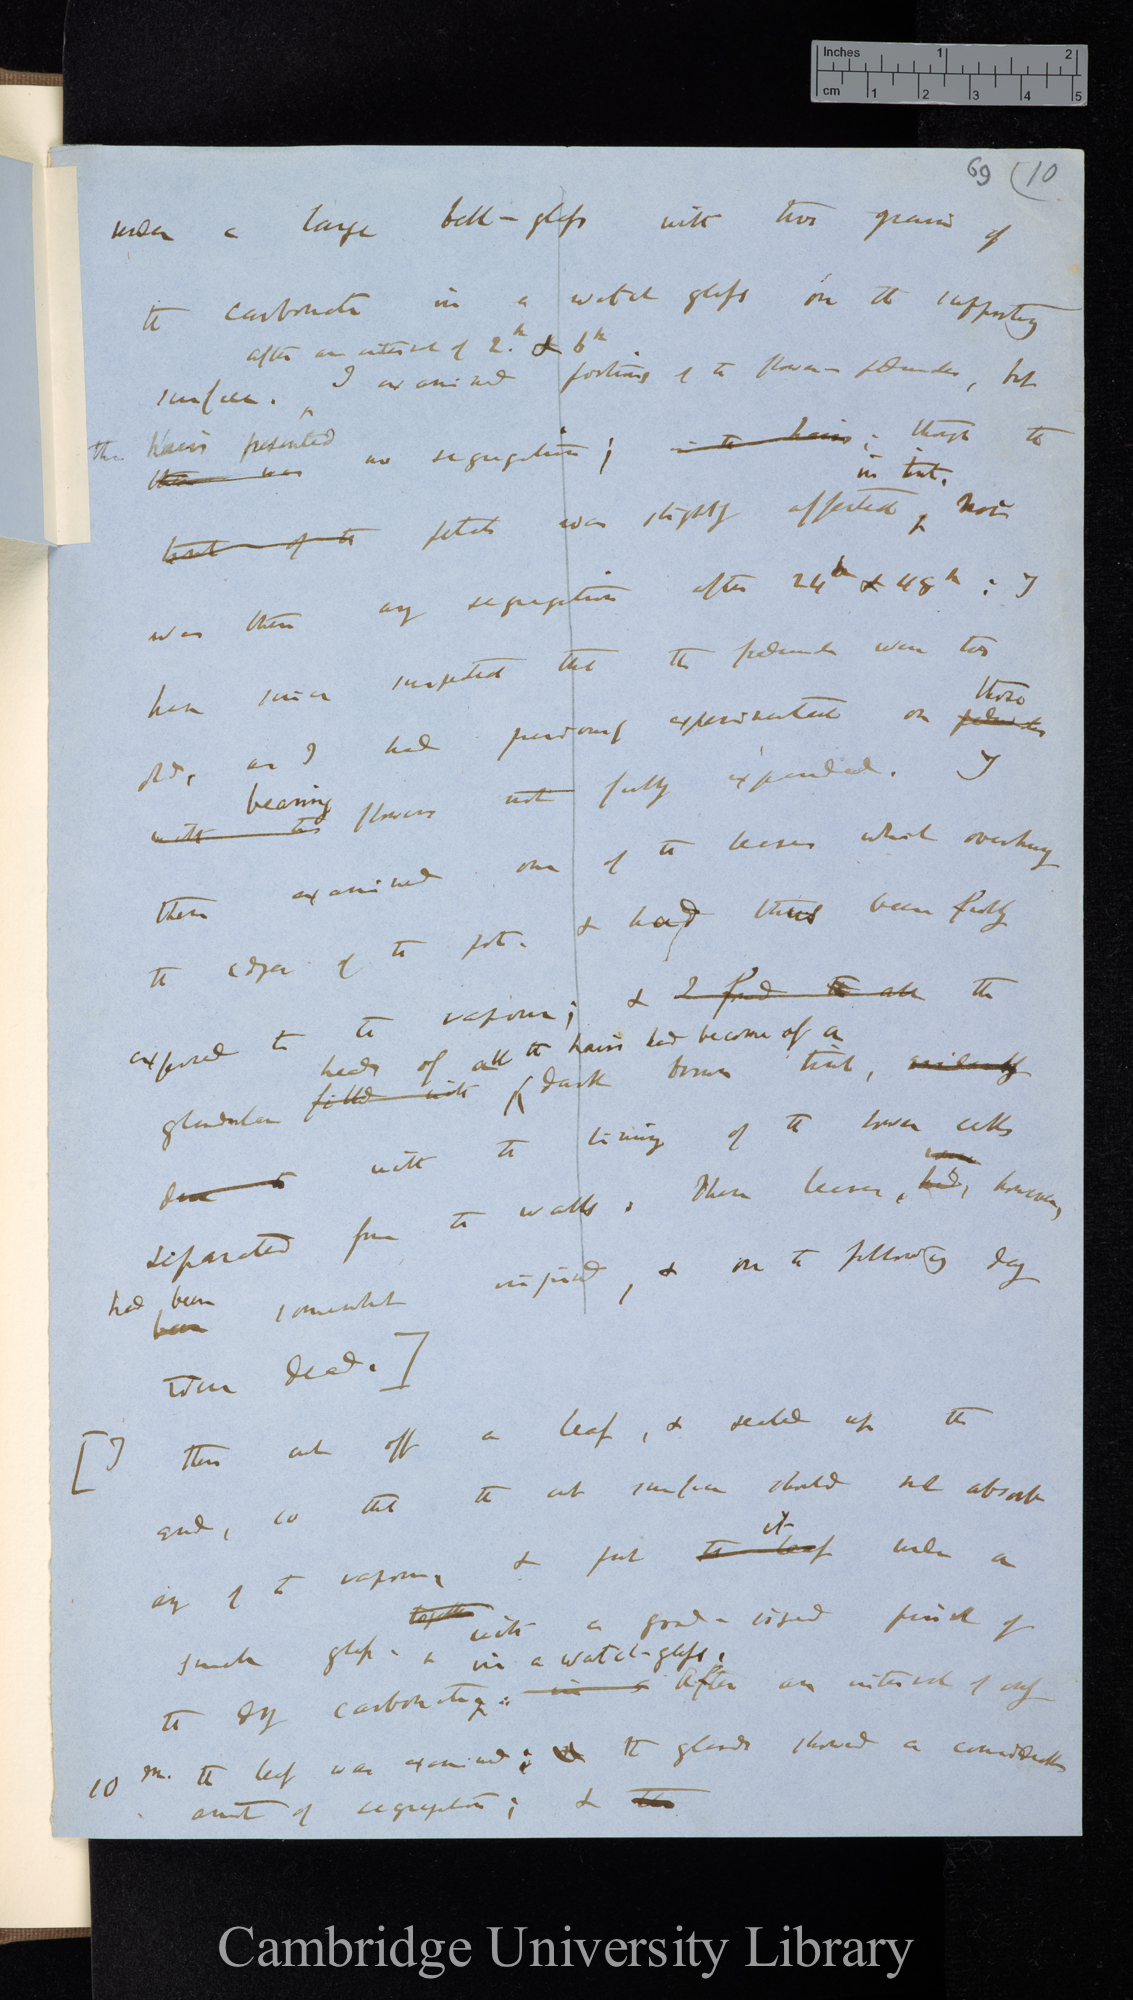 Inches 1 2
cm 1 2 3 4 5
69 (10
under a large bell-glass with two grains of
the carbonate in a watch glass on the supporting
after an interval of 2.h & 6h
surface. I examined portions of the flower-peduncles, but
the hairs presented
there was no segregation; in the hairs; though the
in tint.
tint of the petals was slightly affected, Nor
was there any segregation after 24h & 48h: I
have since suspected that the peduncles were too
those
old, as I had previously experimented on peduncles
bearing
with the flowers not fully expanded. I
then examined one of the leaves which overhung
the edge of the pot. & had thus been fully
exposed to the vapour; & I found the all the
heads of all the hairs had become of a
glandular filled with dark brown tint, evidently
due to with the lining of the lower cells
separated from the walls. These leaves, had, however,
had been
been somewhat injured, & on the following day
were dead.]
[I then cut off a leaf, & sealed up the
end, so that the cut surface should not absorb
it
any of the vapour, & put the leaf under a
together
small glass with a good-sized pinch of
in a watch-glass.
the dry carbonate; in a After an interval of only
10 m. the leaf was examined; & the glands showed a considerable
amount of segregation; & the
Cambridge University Library